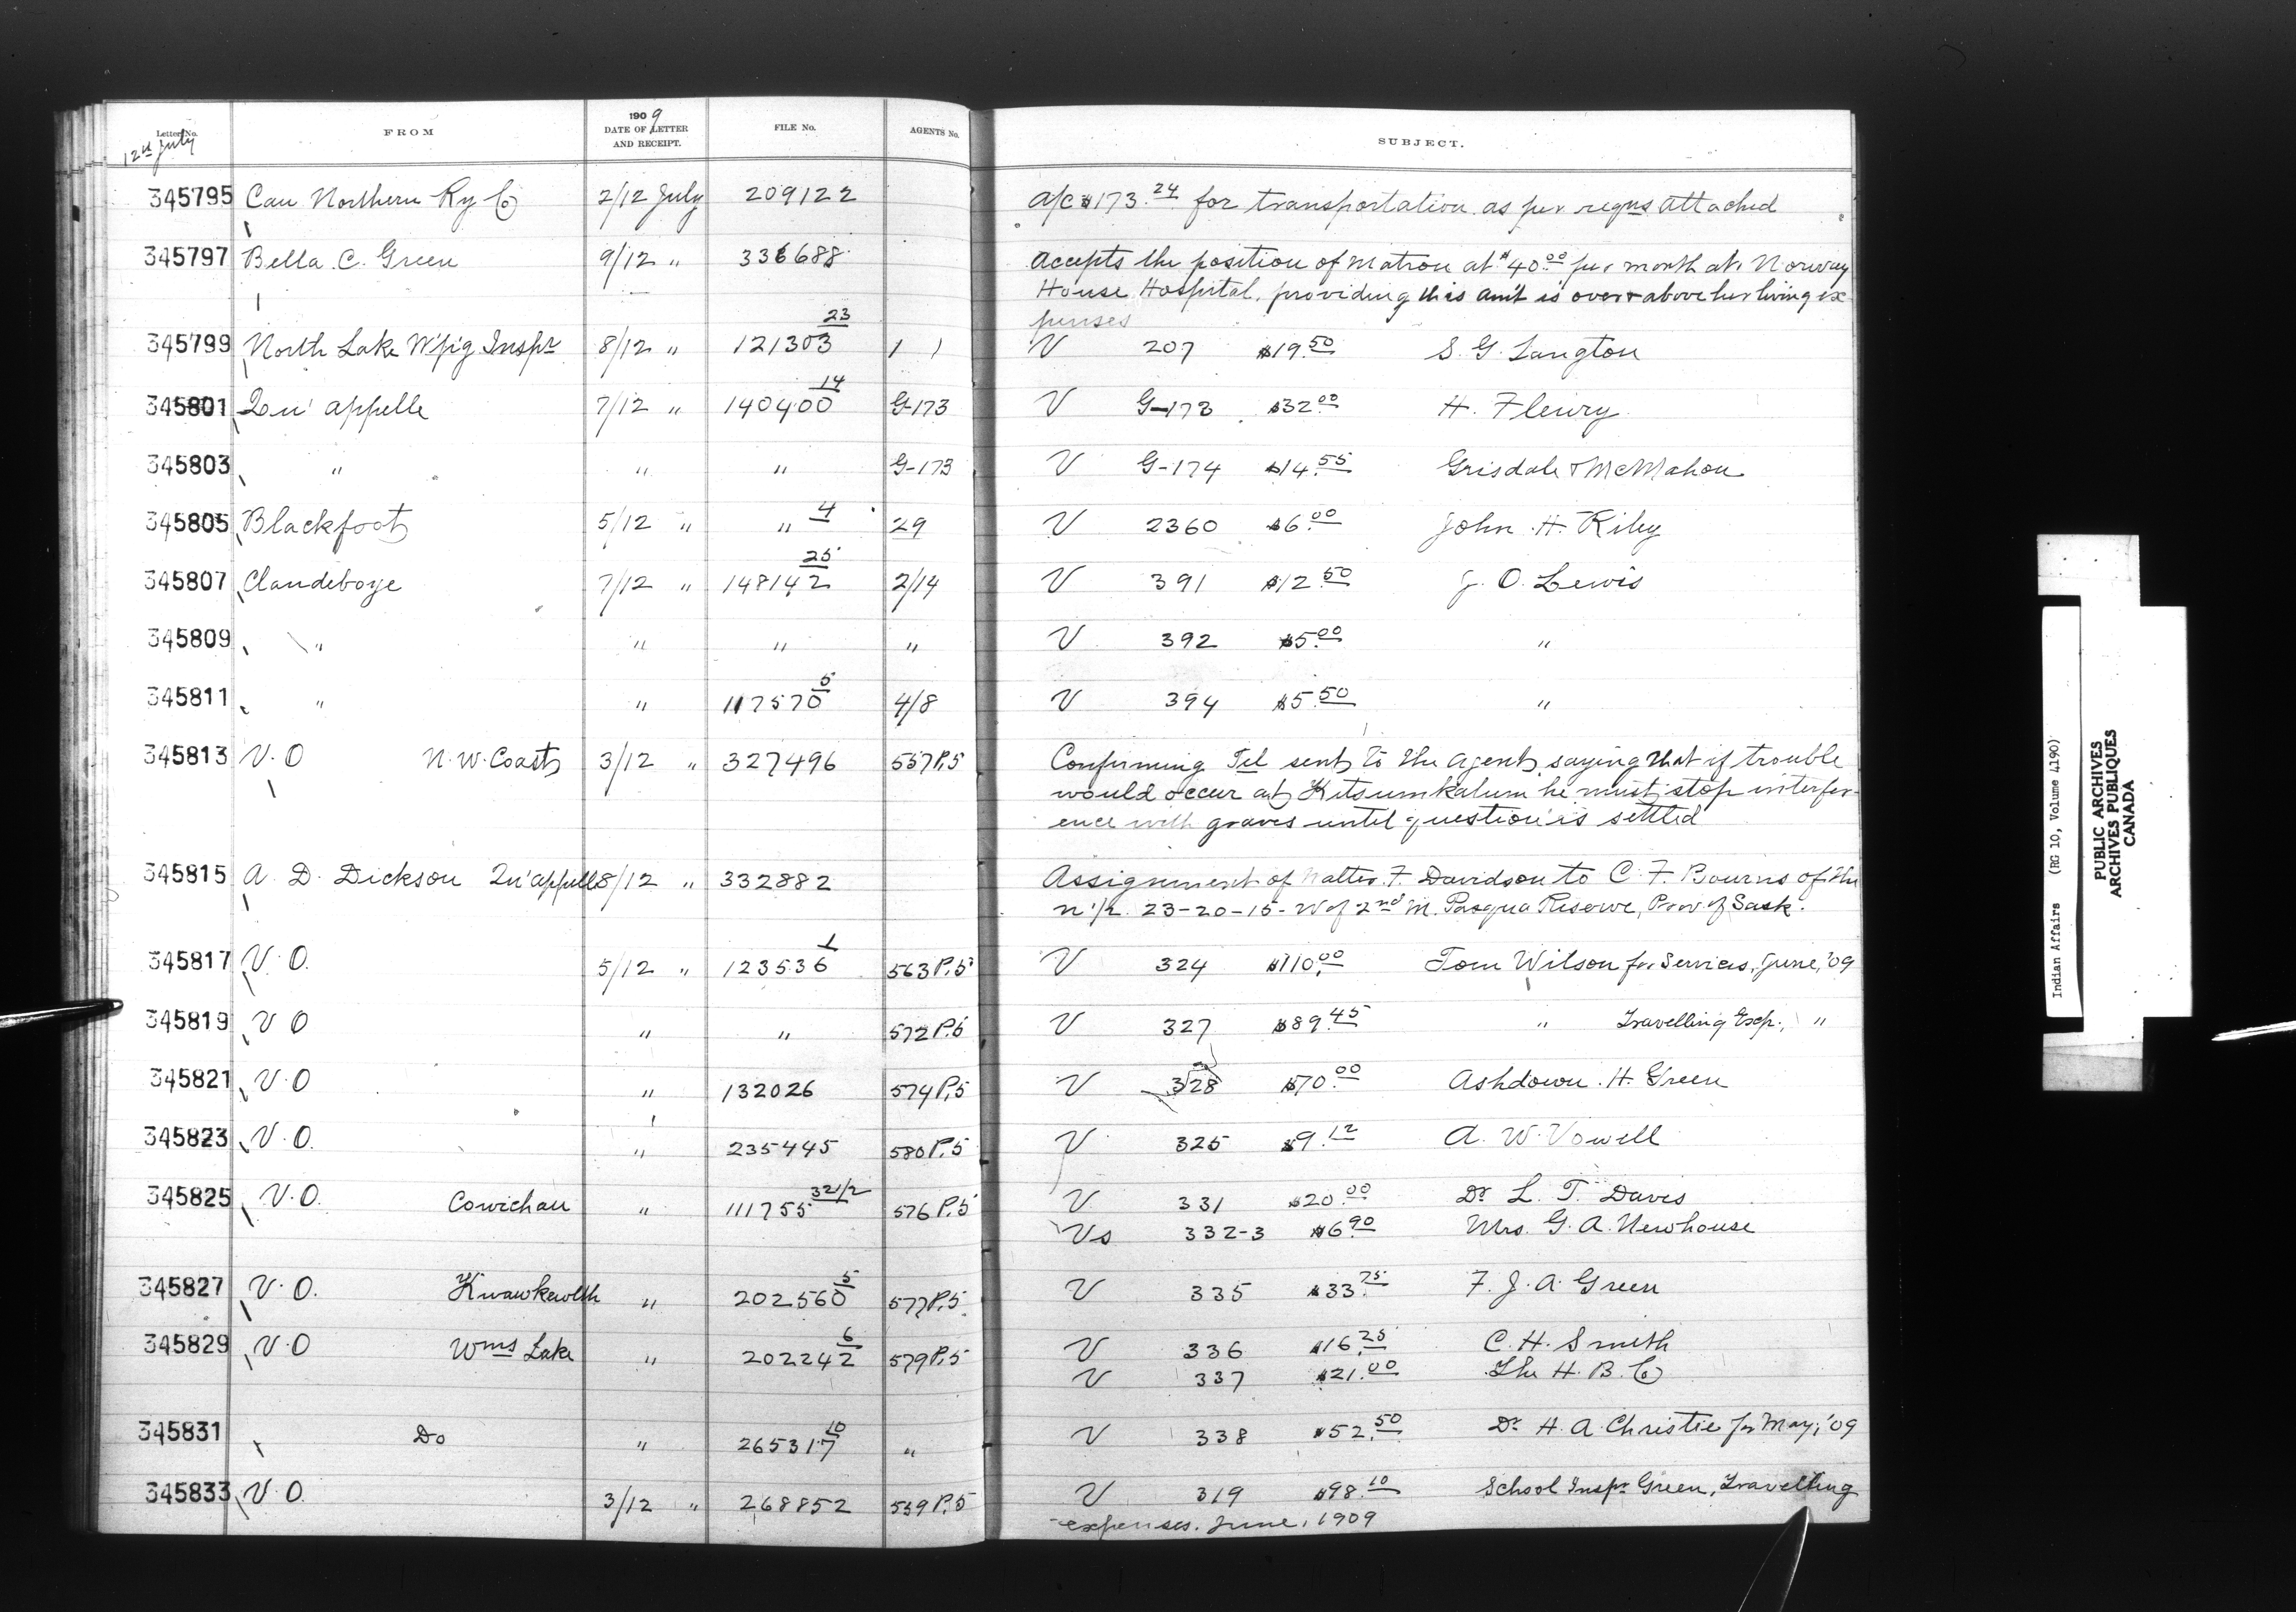 Letter No. FROM 1909 DATE OF LETTER AND RECEIPT. FILE No. AGENTS No. SUBJECT.
12th July
345795 Can Northern Ry Co 2/12 July 209122 a/c $173.24 for transportation as per reqns attached
345797 Bella. C. Green 9/12 " 336688 Accepts the position of Matron at $40.00 per month at Norway
House Hospital, providing this am't is over & above her living ex
penses
345799 North Lake W'p'g Inspr 8/12 " 121303 23 1 1 V 207 $19.50 S. G. Langton
345801 Qu'appelle 7/12 " 140400 14 G-173 V G-173 $32.00 H. Fleury
345803 " " " G-173 V G-174 $14.55 Grisdale & McMahon
345805 Blackfoot 5/12 " " 4 29 V 2360 $6.00 John H. Riley
345807 Clandeboye 7/12 " 148142 25 2/14 V 391 $12.50 J. O. Lewis
345809 " " " " V 392 $5.00 "
345811 " " 117570 5 4/8 V 394 $5.50 "
345813 V. O N. W. Coast 3/12 " 327496 557P.5 Confirming Tel sent to the Agent, saying that if trouble
would occur at Kitsumkalum he must stop interfer-
ence with graves until question is settled
345815 A. D. Dickson Qu'appelle 8/12 " 332882 Assignment of Walter. F. Davidson to C. F. Bourns of the
n 1/2 23-20-15-W of 2nd M. Pasqua Reserve, Prov. of Sask.
345817 V. O. 5/12 " 123536 1 563P.5 V 324 $110.00 Tom Wilson for Services, June, '09
345819 V O " " 572P.5 V 327 $89.45 " Travelling Exp., "
345821 V. O " 132026 574P.5 V 328 $70.00 Ashdown. H. Green
345823 V. O. " 235445 580P.5 V 325 $9.12 A. W. Vowell
345825 V. O. Cowichan " 111755 32 1/2 576P.5 V 331 $20.00 Dr L. T. Davis
Vs 332-3 $6.90 Mrs. G. A. Newhouse
345827 V. O. Kwawkewlth " 202560 5 577P.5 V 335 $33.75 F. J. A. Green
345829 V. O Wms Lake " 202242 6 579P.5 V 336 $16.25 C. H. Smith
V 337 $21.00 The H. B. Co
345831 Do " 265317 10 " V 338 $52.50 Dr H. A. Christie for May, '09
345833 V. O. 3/12 " 268852 559P.5 V 319 $98.10 School Inspr Green, Travelling
expenses. June, 1909
Indian Affairs (RG 10, Volume 4190)
PUBLIC ARCHIVES
ARCHIVES PUBLIQUES
CANADA